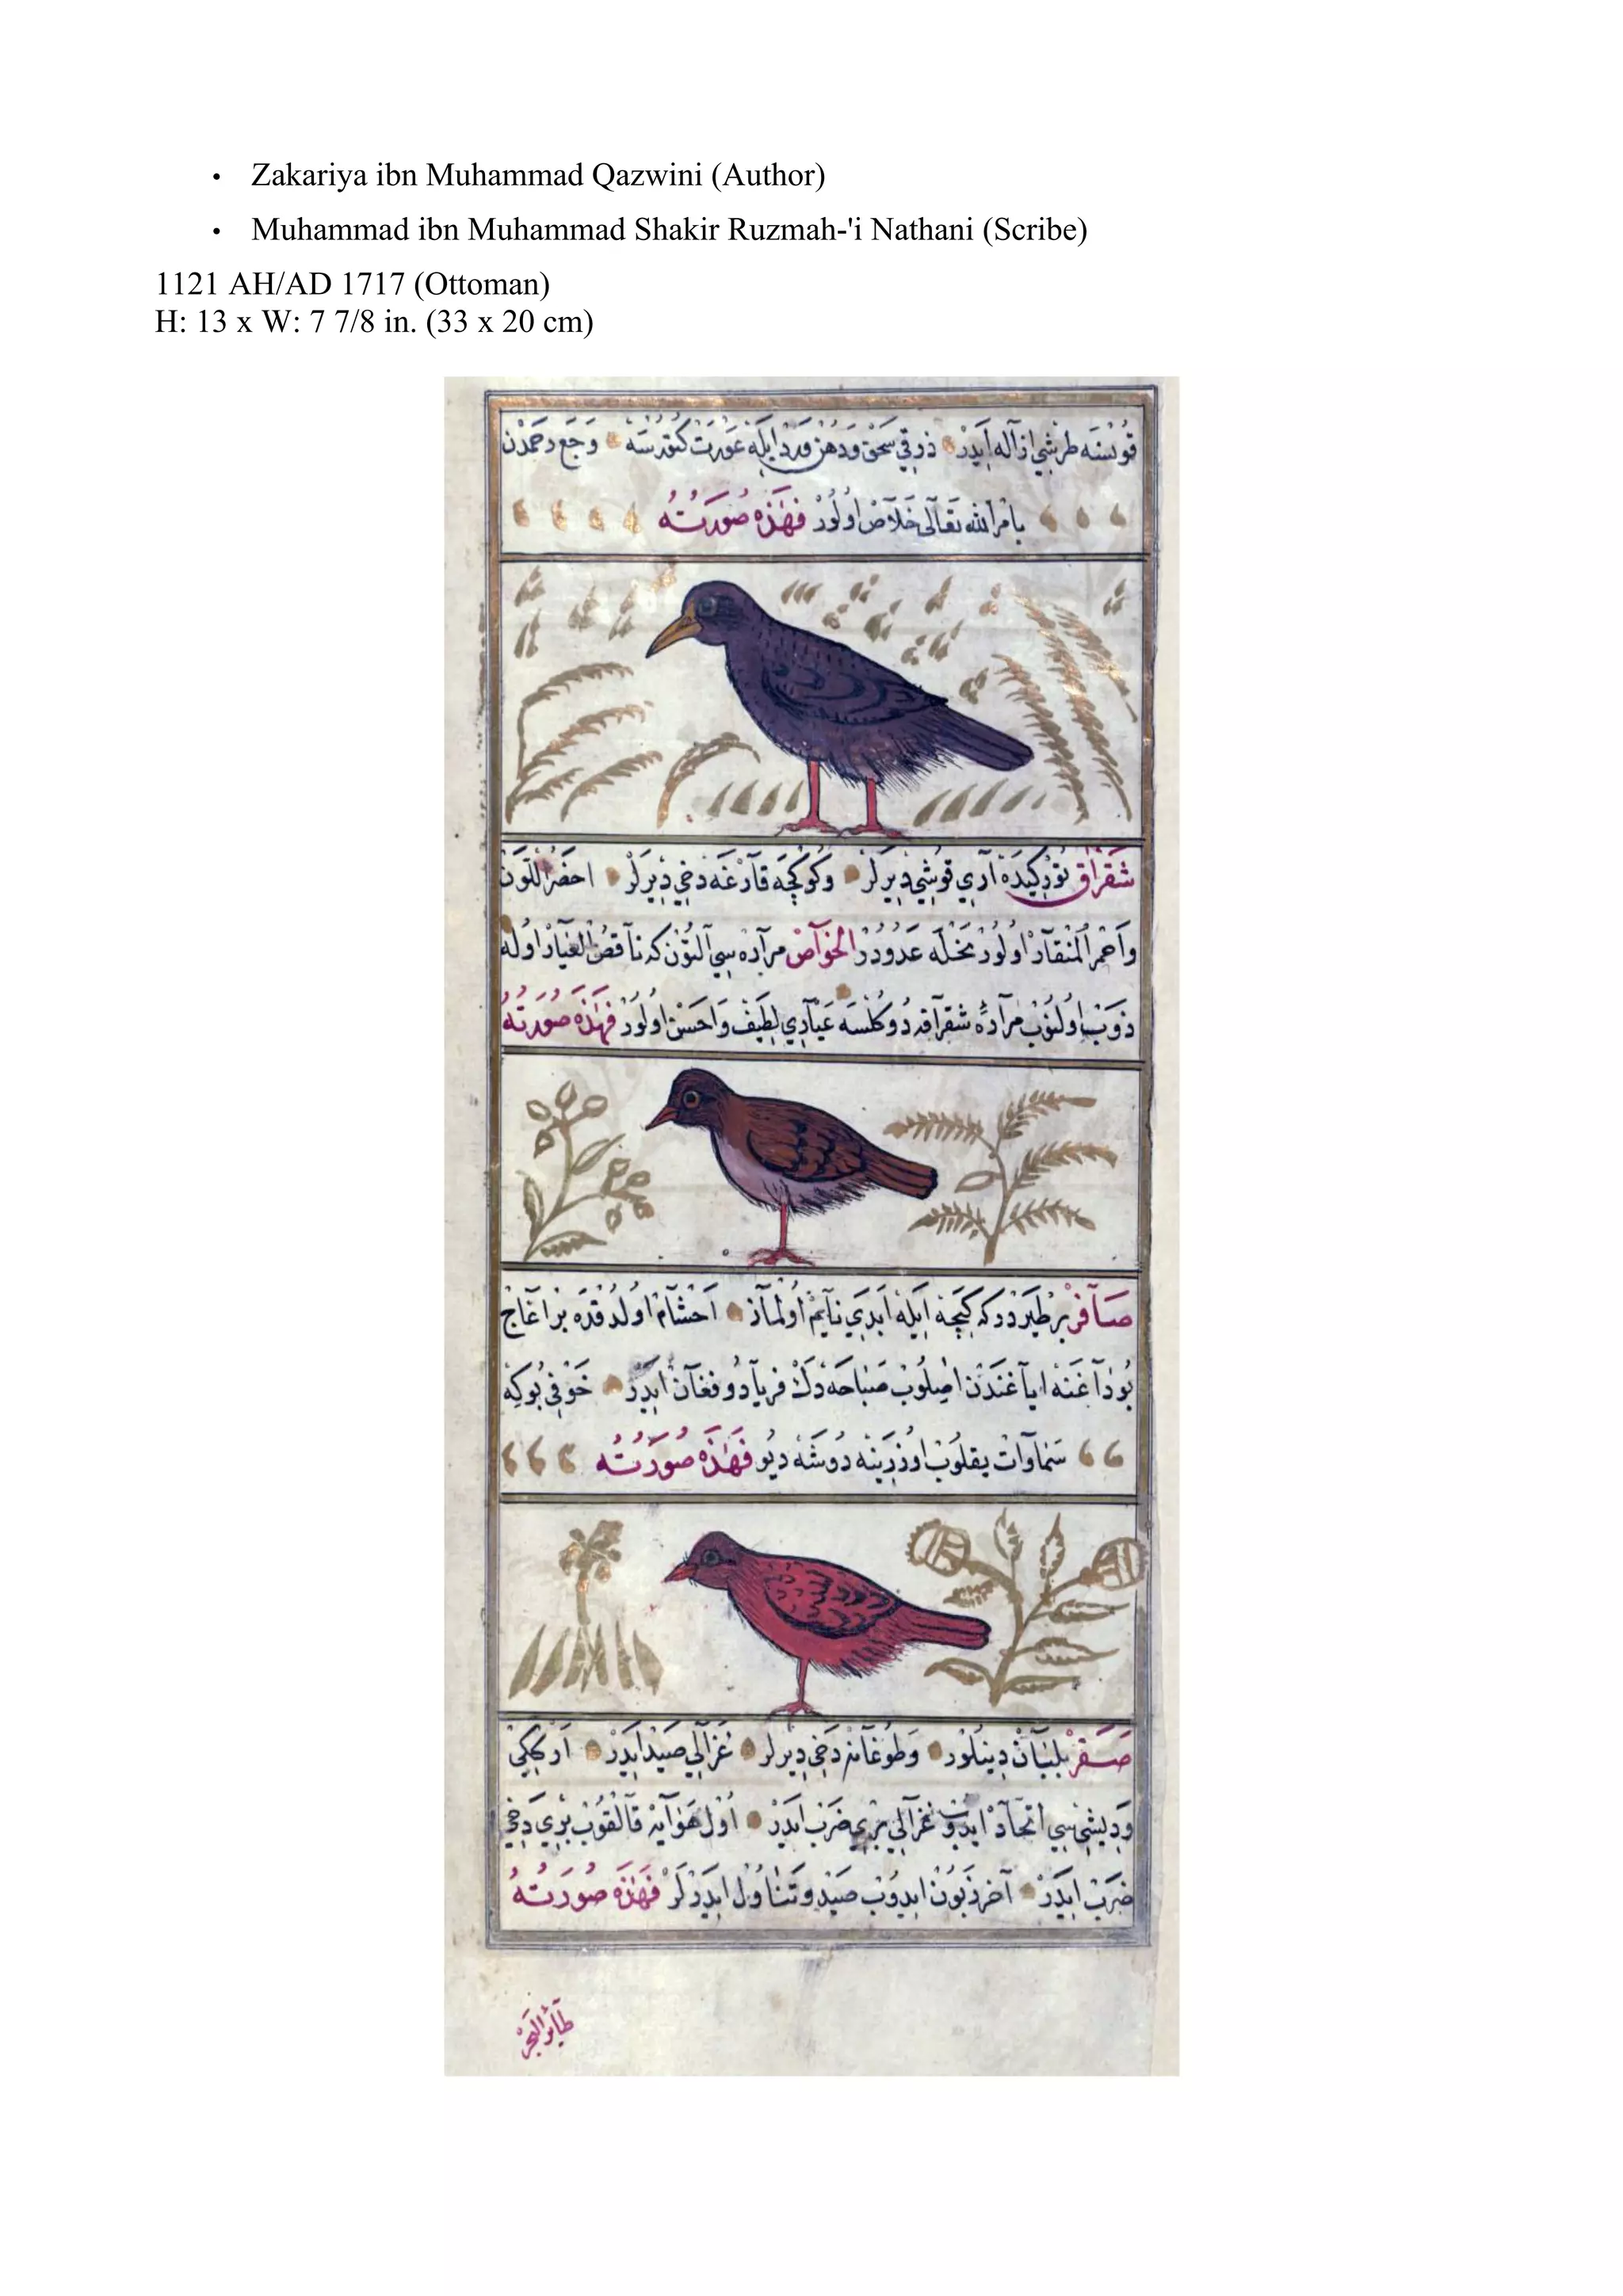 • Zakariya ibn Muhammad Qazwini (Author)
• Muhammad ibn Muhammad Shakir Ruzmah-'i Nathani (Scribe)
1121 AH/AD 1717 (Ottoman)
H: 13 x W: 7 7/8 in. (33 x 20 cm)
ايدر ذرقي سحق ودهن ورد ايله عورت كتورسه وجع رحمدن
بامر الله تعالى خلاص اولور فهذه صورته
شقراق تركيده آري قوشي ديرلر وكوكجه قارغه دخي ديرلر اخضر اللون
واحمر المنقار اولور نخله عدودر الخواص مراره سي آلتون كه ناقص العيار اوله
ذوب اولنوب مراره شقراقه دوكلسه عياري لطيف واحسن اولور فهذه صورته
صافر بر طيردر كه كيجه ايله ابدي نايم اولماز اخشام اولدقده بر اغاج
بوداغنه اياغندن اصلوب صباحه دك فرياد وفغان ايدر خوفي بوكه
سماوات يقلوب اوزرينه دوشه ديو فهذه صورته
صقر بلبان دينلور وطوغان دخي ديرلر غزالي صيد ايدر اركي
وديشيسي اتحاد ايدوب غزالي بري ضرب ايدر اول هوايه قالقوب بري دخي
ضرب ايدر آخر زبون ايدوب صيد وتناول ايدرلر فهذه صورته
طائر البحر